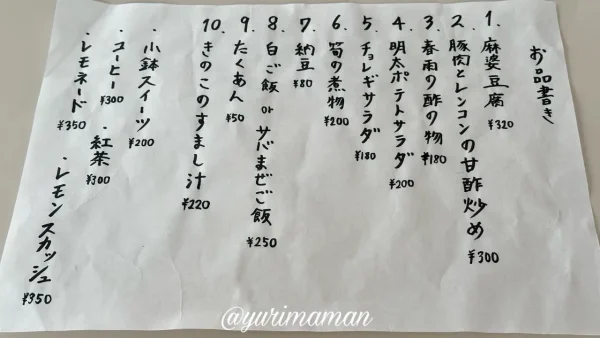 お品書き
1. 麻婆豆腐 ¥320
2. 豚肉とレンコンの甘酢炒め ¥300
3. 春雨の酢の物 ¥180
4. 明太ポテトサラダ ¥200
5. チョレギサラダ ¥180
6. 筍の煮物 ¥200
7. 納豆 ¥80
8. 白ご飯 or サバまぜご飯 ¥250
9. たくあん ¥50
10. きのこのすまし汁 ¥220
・小鉢スイーツ ¥200
・コーヒー ¥300
・紅茶 ¥300
・レモネード ¥350
・レモンスカッシュ ¥350
@yurimaman